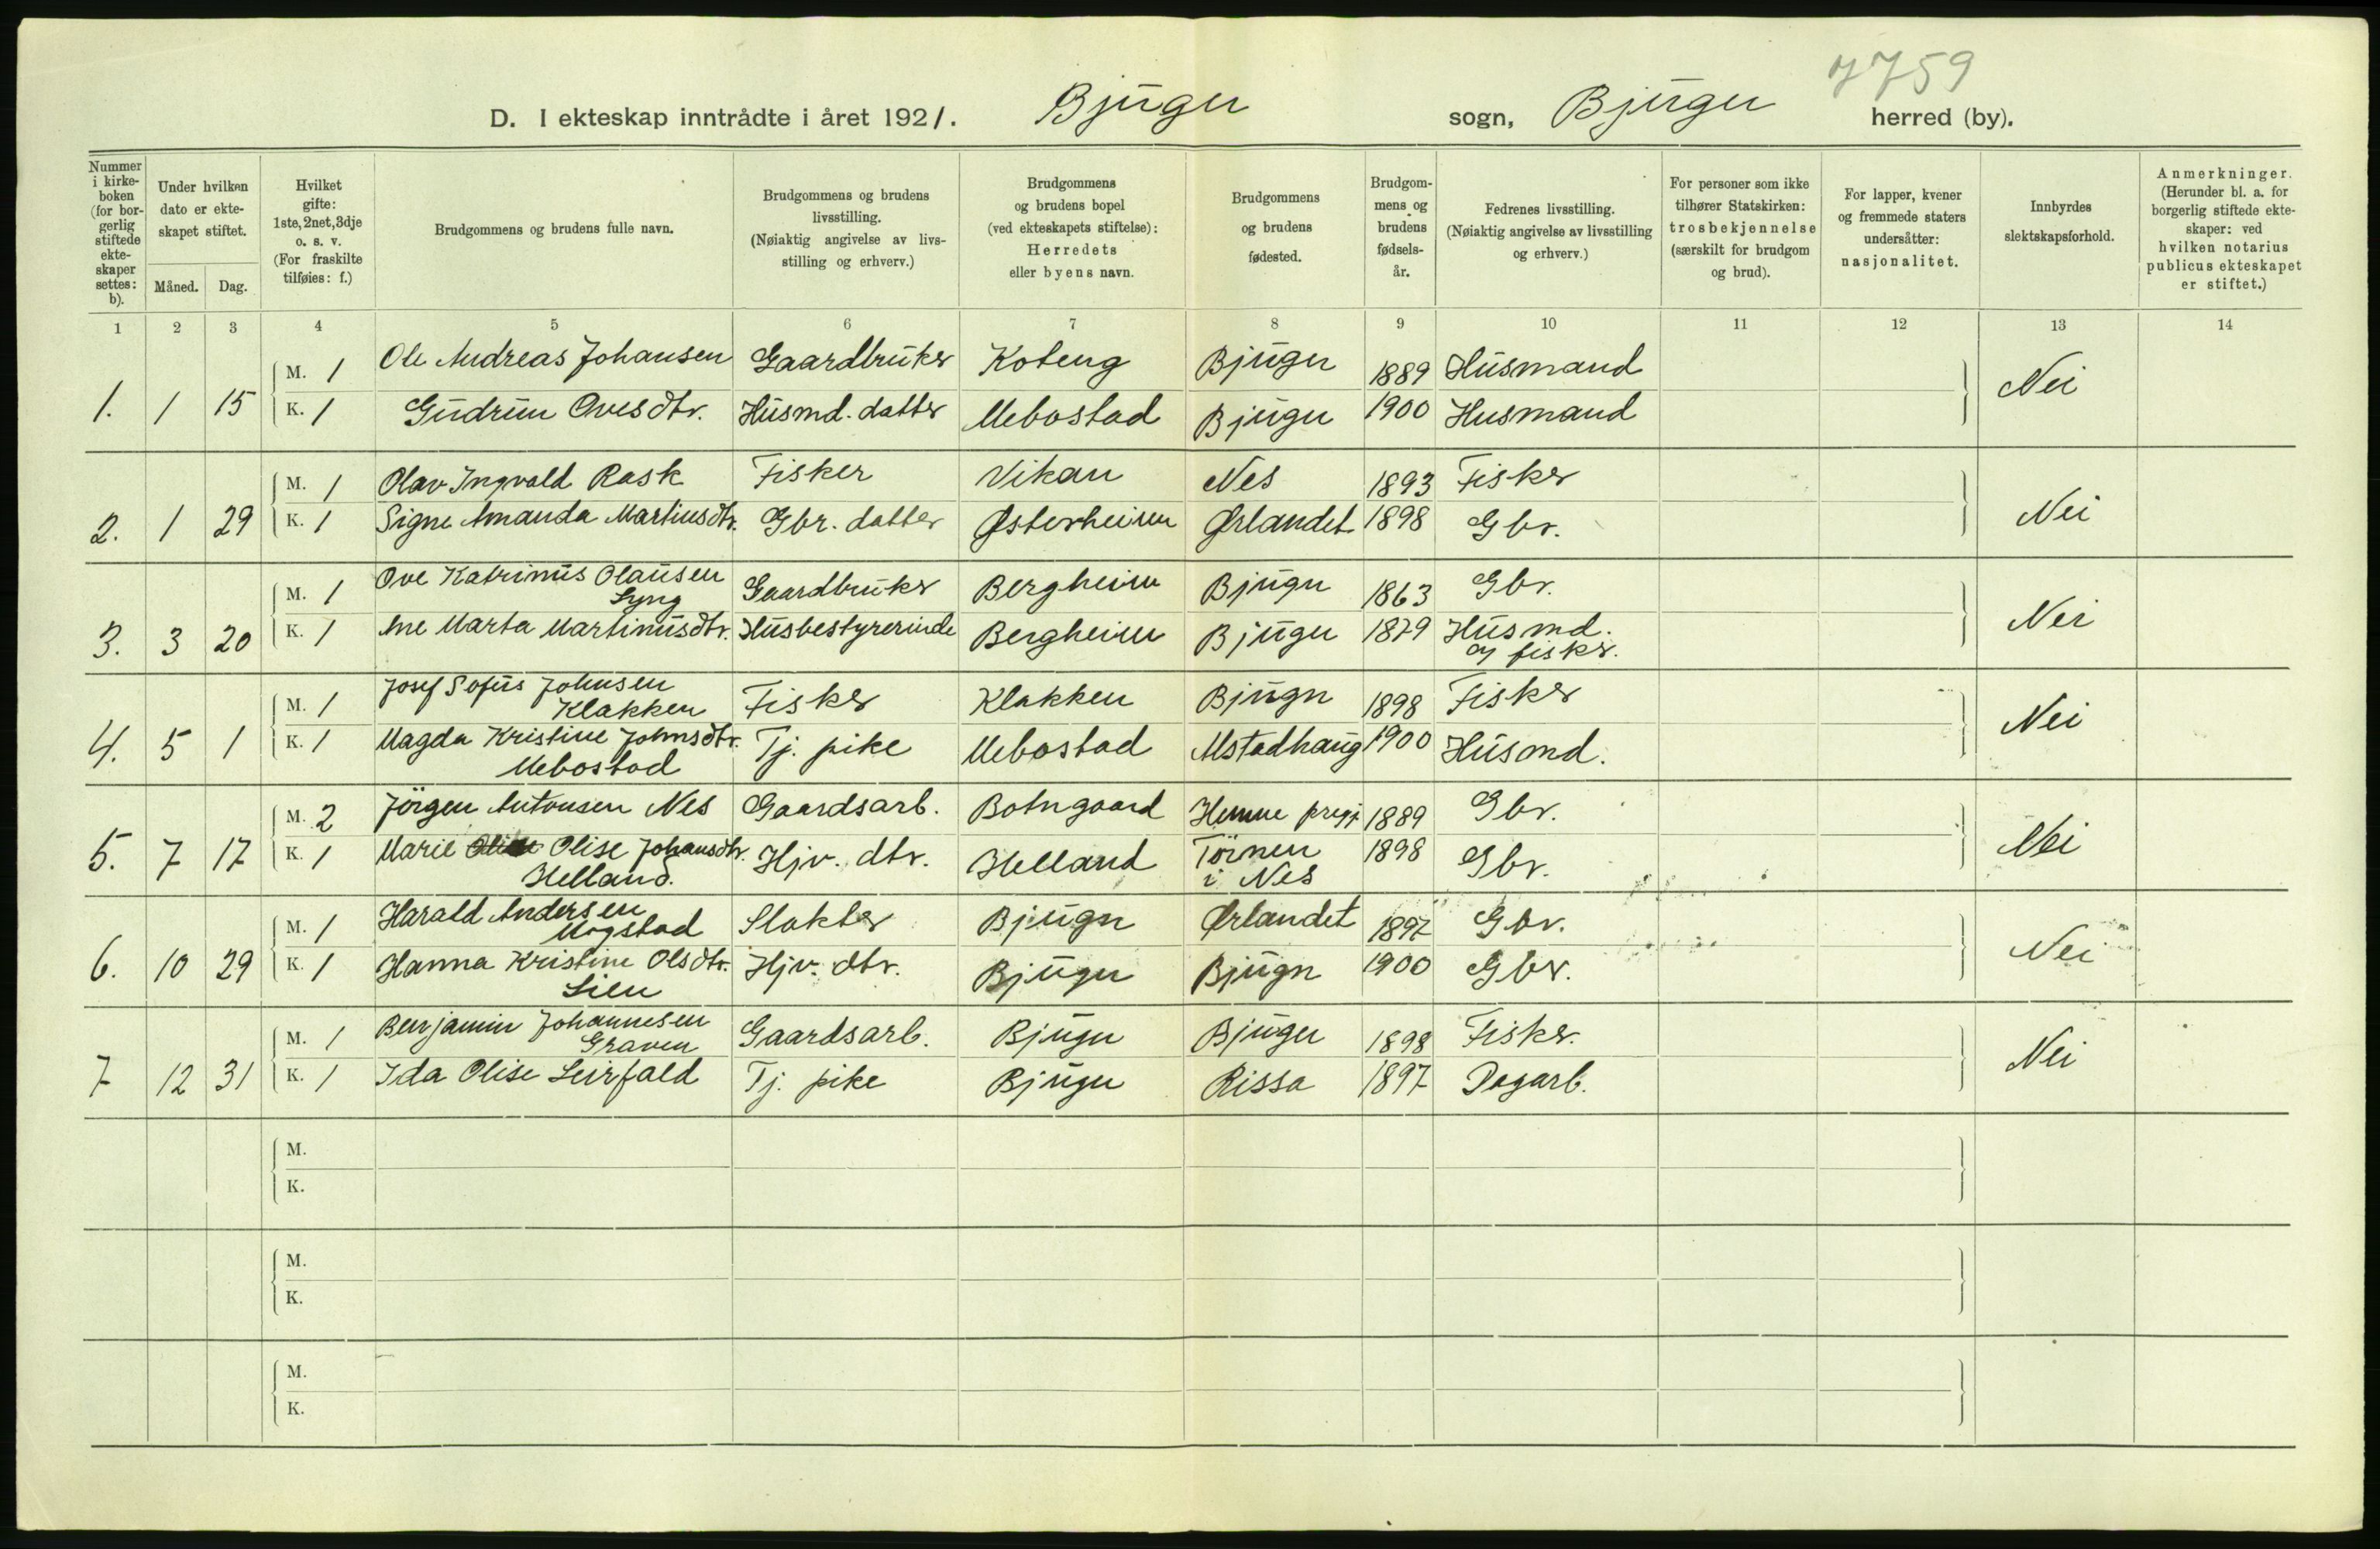 7759
D. I ekteskap inntrådte i året 1921. Bjugn sogn, Bjugn herred (by).
Nummer i kirkeboken (for borgerlig stiftede ekteskaper settes: b).
Under hvilken dato er ekteskapet stiftet.
Måned. Dag.
Hvilket gifte: 1ste, 2net, 3dje o. s. v. (For fraskilte tilføies: f.)
Brudgommens og brudens fulle navn.
Brudgommens og brudens livsstilling. (Nøiaktig angivelse av livsstilling og erhverv.)
Brudgommens og brudens bopel (ved ekteskapets stiftelse): Herredets eller byens navn.
Brudgommens og brudens fødested.
Brudgommens og brudens fødselsår.
Fedrenes livsstilling. (Nøiaktig angivelse av livsstilling og erhverv.)
For personer som ikke tilhører Statskirken: trosbekjennelse (særskilt for brudgom og brud).
For lapper, kvener og fremmede staters undersåtter: nasjonalitet.
Innbyrdes slektskapsforhold.
Anmerkninger. (Herunder bl. a. for borgerlig stiftede ekteskaper: ved hvilken notarius publicus ekteskapet er stiftet.)
1 2 3 4 5 6 7 8 9 10 11 12 13 14
M. 1 Ole Andreas Johansen Gaardbruker Koteng Bjugn 1889 Husmand
1. 1 15 K. 1 Gudrun Ovesdtr. Husmd. datter Mebostad Bjugn 1900 Husmand Nei
M. 1 Olav Ingvald Rask Fisker Vikan Nes 1893 Fisker
2. 1 29 K. 1 Signe Amanda Martinsdtr. Gbr. datter Østerheim Ørlandet 1898 Gbr. Nei
M. 1 Ove Katrinus Olausen Lyng Gaardbruker Bergheim Bjugn 1863 Gbr.
3. 3 20 K. 1 Ane Marta Martinusdtr. Husbestyrerinde Bergheim Bjugn 1879 Husmd. og fisker. Nei
M. 1 Josef Sofus Johnsen Klakken Fisker Klakken Bjugn 1898 Fisker
4. 5 1 K. 1 Magda Kristine Johnsdtr. Mebostad Tj. pike Mebostad Alstadhaug 1900 Husmd. Nei
M. 2 Jörgen Antonsen Nes Gaardsarb. Botngaard Hemne pregj. 1889 Gbr.
5. 7 17 K. 1 Marie Olise Johansdtr. Helland. Hjv. dtr. Helland Törnen i Nes 1898 Gbr. Nei
M. 1 Harald Andersen Mogstad Slakter Bjugn Ørlandet 1897 Gbr.
6. 10 29 K. 1 Hanna Kristine Olsdtr. Lien Hjv. dtr. Bjugn Bjugn 1900 Gbr. Nei
M. 1 Benjamin Johannesen Graven Gaardsarb. Bjugn Bjugn 1898 Fisker.
7 12 31 K. 1 Ida Olise Leirfald Tj. pike Bjugn Rissa 1897 Dagarb. Nei
M.
K.
M.
K.
M.
K.